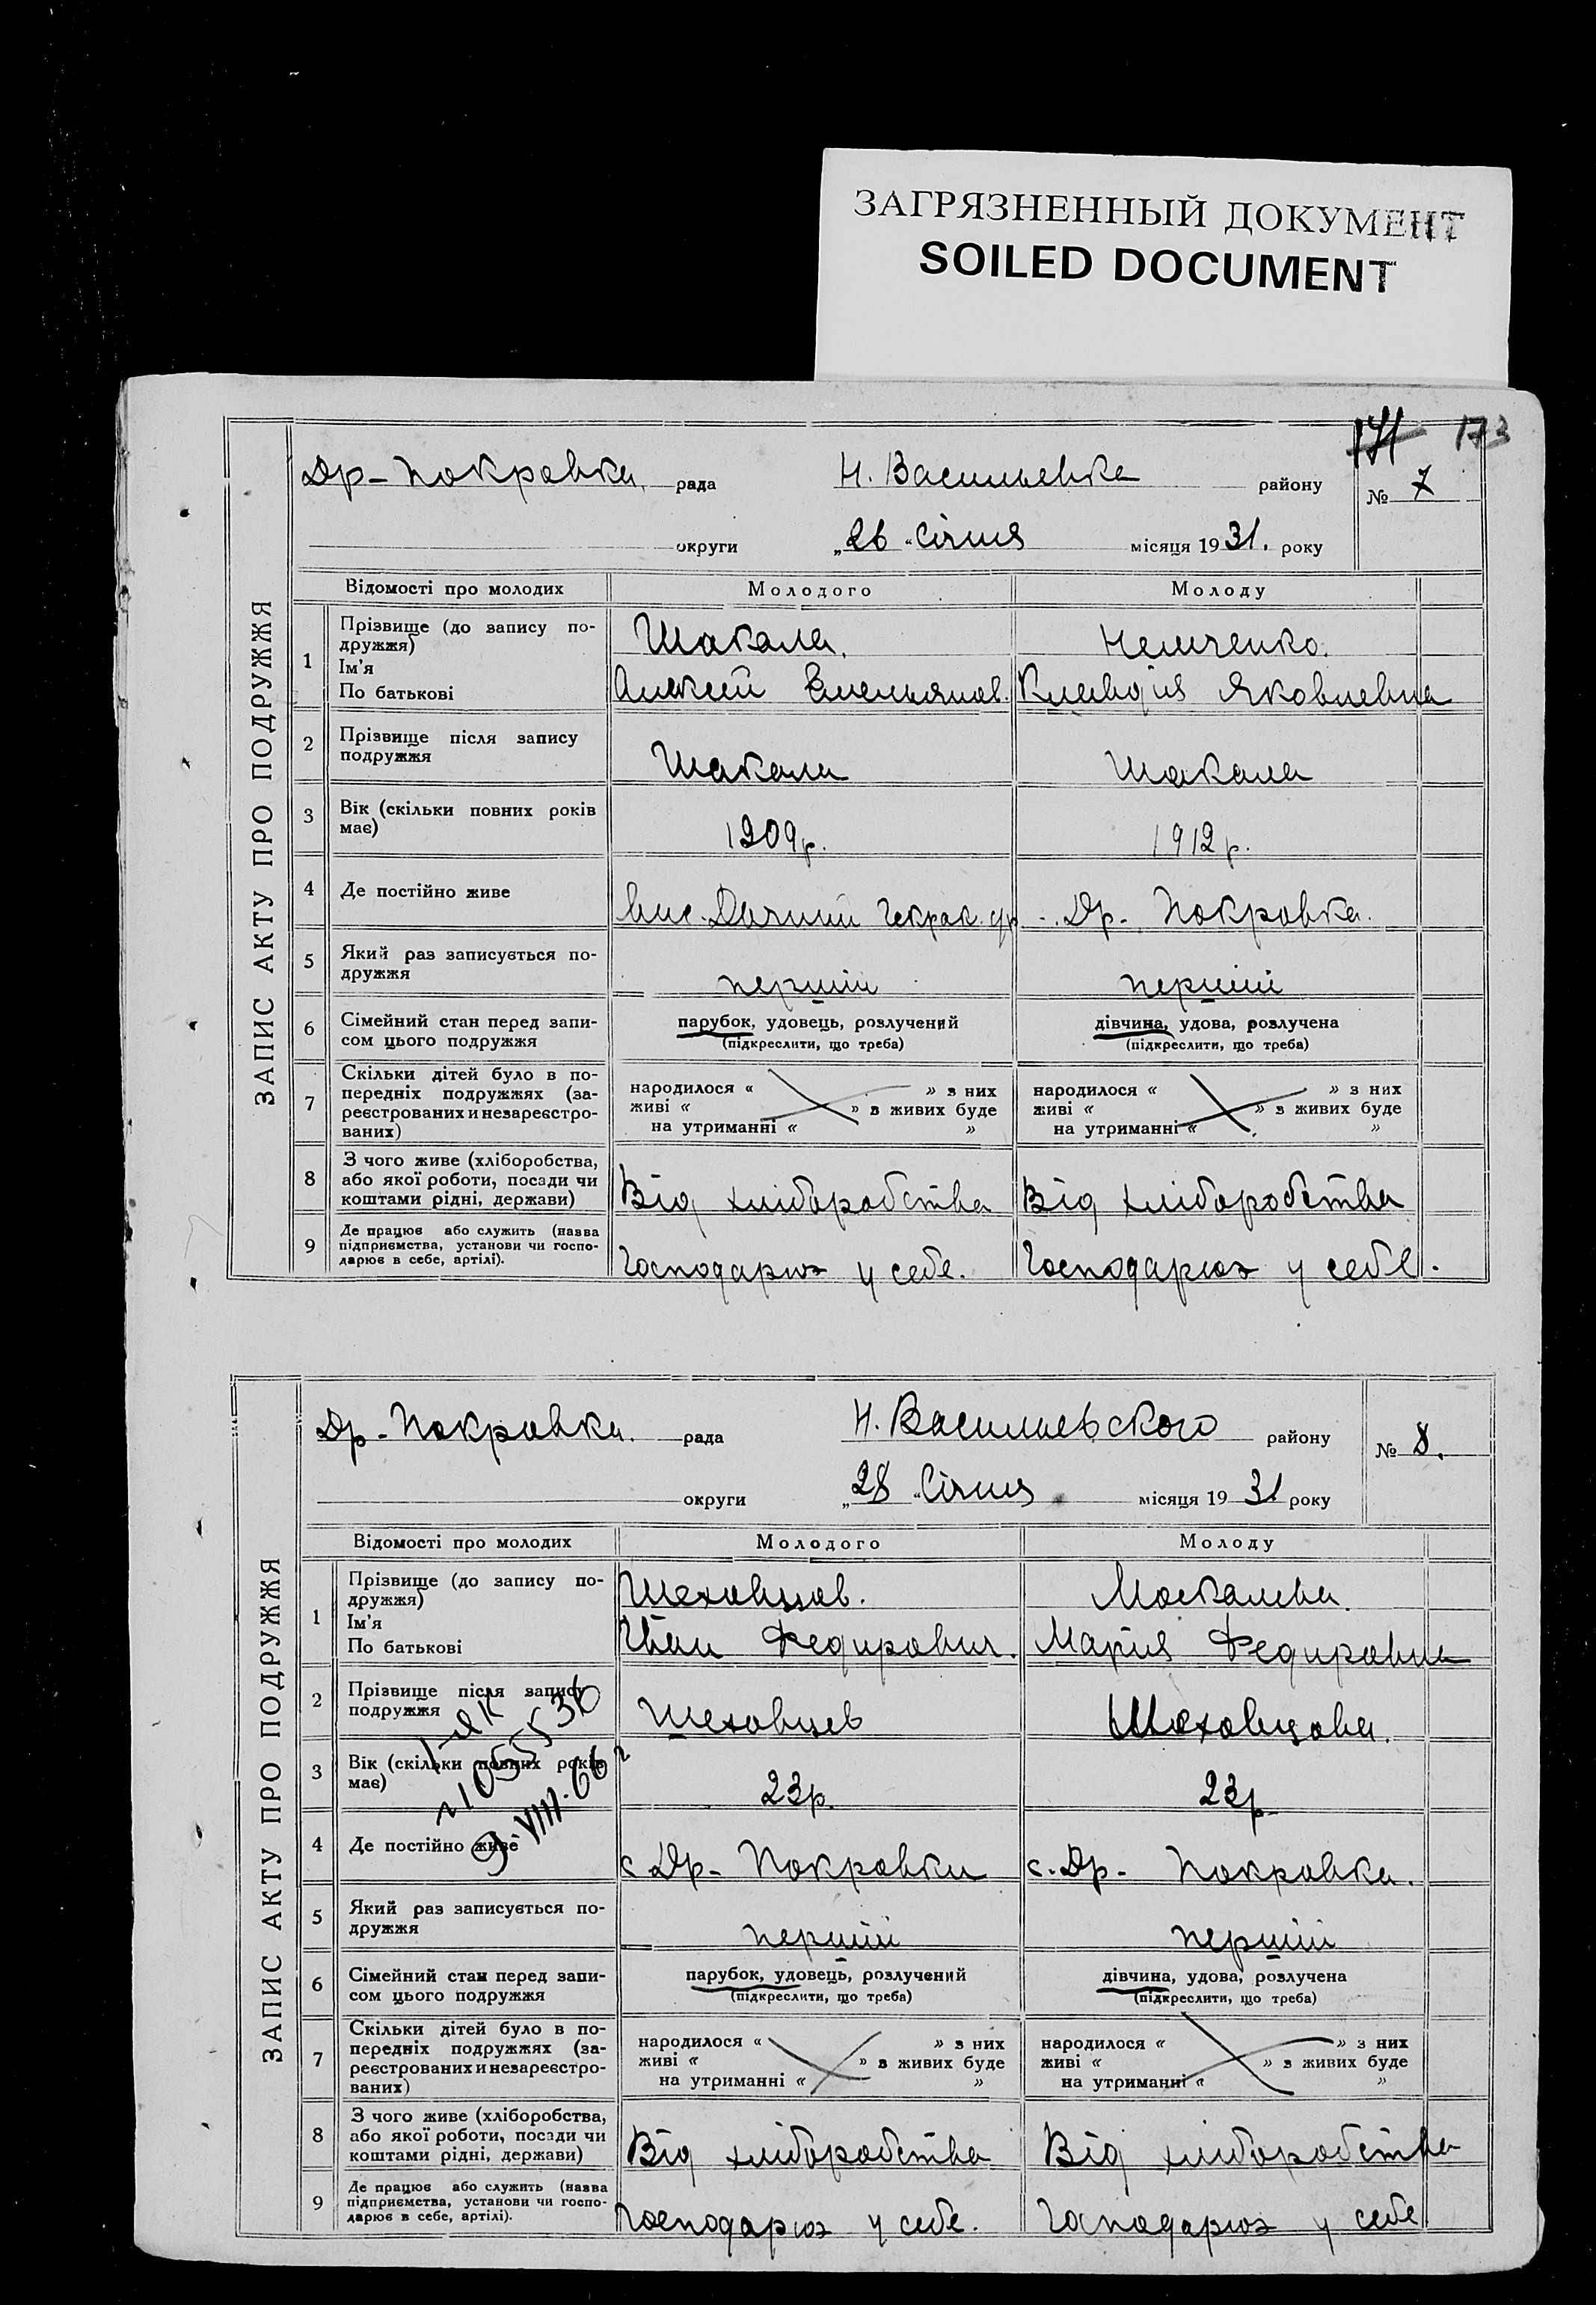 ЗАГРЯЗНЕННЫЙ ДОКУМЕНТ
SOILED DOCUMENT
171 173
ЗАПИС АКТУ ПРО ПОДРУЖЖЯ
Др-Покровка. рада Н. Васильевка району № 7
округи „26 “ Січня місяця 1931. року
Відомості про молодих Молодого Молоду
1 Прізвище (до запису по-
дружжя) Шакала. Немченко.
Ім'я
По батькові Алексей Емельянов. Клавдія Яковлевна
2 Прізвище після запису
подружжя Шакала Шакала
3 Вік (скільки повних років
має) 1909р. 1912р.
4 Де постійно живе Дачний Др- Покровка.
5 Який раз записується по-
дружжя перший перший
6 Сімейний стан перед запи- парубок, удовець, розлучений дівчина, удова, розлучена
сом цього подружжя (підкреслити, що треба) (підкреслити, що треба)
7 Скільки дітей було в по-
передніх подружжях (за- народилося « » з них народилося « » з них
реєстрованих и незареєстро- живі « » з живих буде живі « » з живих буде
ваних) на утриманні « » на утриманні « »
8 З чого живе (хліборобства,
або якої роботи, посади чи
коштами рідні, держави) Від хліборобства Від хліборобства
9 Де працює або служить (назва
підприємства, установи чи госпо-
дарює в себе, артілі). Господарює у себе. Господарює у себе.
ЗАПИС АКТУ ПРО ПОДРУЖЖЯ
Др-Покровка. рада Н. Васильевского району № 8.
округи „28 “ Січня місяця 1931 року
Відомості про молодих Молодого Молоду
1 Прізвище (до запису по-
дружжя) Шеховцов. Москалева.
Ім'я
По батькові Иван Федирович. Марія Федировна
2 Прізвище після запису
подружжя Шеховцев Шеховцова.
3 Вік (скільки повних років
має) 23р. 23р
9.VIII.66 г
4 Де постійно живе с Др- Покровки с. Др- Покровка.
5 Який раз записується по-
дружжя перший перший
6 Сімейний стан перед запи- парубок, удовець, розлучений дівчина, удова, розлучена
сом цього подружжя (підкреслити, що треба) (підкреслити, що треба)
7 Скільки дітей було в по-
передніх подружжях (за- народилося « » з них народилося « » з них
реєстрованих и незареєстро- живі « » з живих буде живі « » з живих буде
ваних) на утриманні « » на утриманні « »
8 З чого живе (хліборобства,
або якої роботи, посади чи
коштами рідні, держави) Від хліборобства Від хліборобства
9 Де працює або служить (назва
підприємства, установи чи госпо-
дарює в себе, артілі). Господарює у себе. Господарює у себе